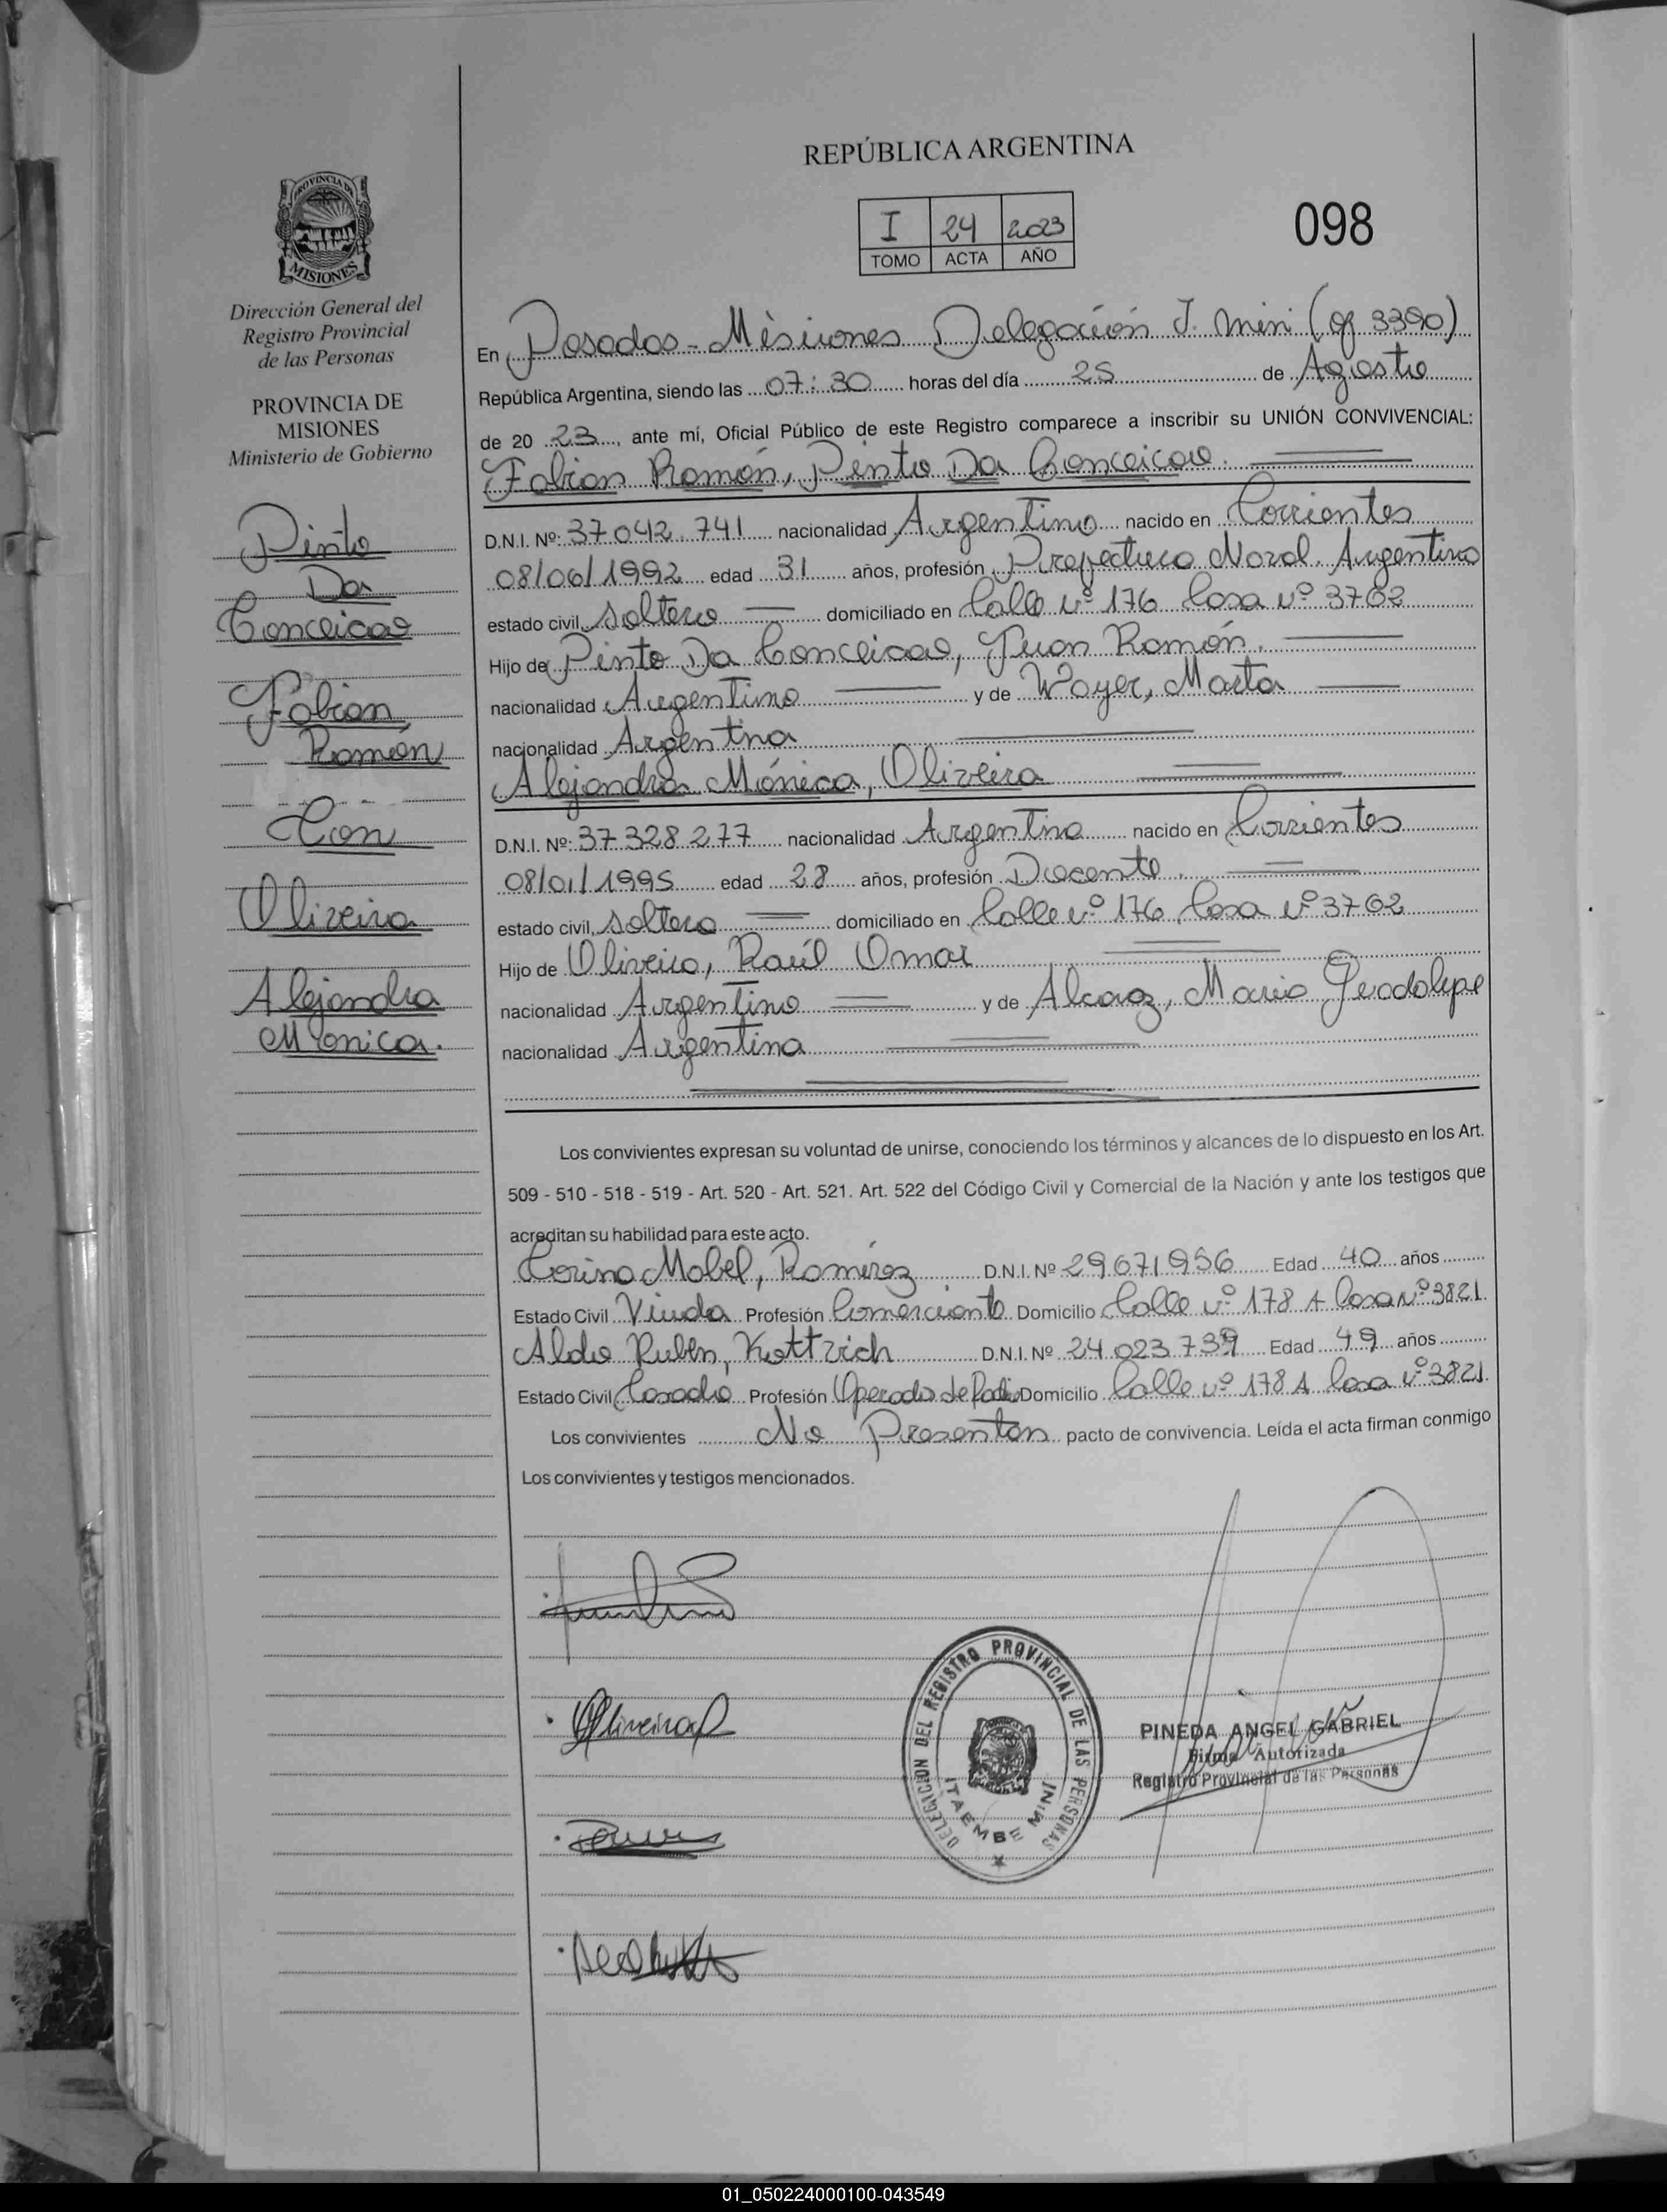 REPÚBLICA ARGENTINA
I 24 2023
TOMO ACTA AÑO
098
PROVINCIA DE
MISIONES
Dirección General del
Registro Provincial
de las Personas
PROVINCIA DE
MISIONES
Ministerio de Gobierno
Pinto
Da
Conceicao
Fabian
Ramón
Con
Oliveira
Alejandra
Mónica.
En Posadas - Misiones Delegación I. Miní (of 3390)
República Argentina, siendo las 07:30 horas del día 25 de Agosto
de 20 23, ante mí, Oficial Público de este Registro comparece a inscribir su UNIÓN CONVIVENCIAL:
Fabian Ramón, Pinto Da Conceicao.
D.N.I. Nº: 37.042.741 nacionalidad Argentino nacido en Corrientes
08/06/1992 edad 31 años, profesión Prefectura Naval Argentina
estado civil soltero domiciliado en Calle nº 176 Casa nº 3762
Hijo de Pinto Da Conceicao, Juan Ramón.
nacionalidad Argentino y de Wayer, Marta
nacionalidad Argentina
Alejandra Mónica, Oliveira
D.N.I. Nº: 37 328 277 nacionalidad Argentina nacido en Corrientes
08/01/1995 edad 28 años, profesión Docente.
estado civil soltera domiciliado en Calle nº 176 Casa nº 3762
Hijo de Oliveira, Raúl Omar
nacionalidad Argentino y de Alcaraz, Maria Guadalupe
nacionalidad Argentina
Los convivientes expresan su voluntad de unirse, conociendo los términos y alcances de lo dispuesto en los Art.
509 - 510 - 518 - 519 - Art. 520 - Art. 521. Art. 522 del Código Civil y Comercial de la Nación y ante los testigos que
acreditan su habilidad para este acto.
Corina Mabel, Ramírez D.N.I. Nº 29671956 Edad 40 años
Estado Civil Viuda Profesión Comerciante Domicilio Calle nº 178 A Casa nº 3821.
Aldo Ruben, Kottzich D.N.I. Nº 24.023.739 Edad 49 años
Estado Civil Casado Profesión Operador de Radio Domicilio Calle nº 178 A Casa nº 3821.
Los convivientes No Presentan pacto de convivencia. Leída el acta firman conmigo
Los convivientes y testigos mencionados.
DELEGACION DEL REGISTRO PROVINCIAL DE LAS PERSONAS
ITAEMBE MINI
PINEDA ANGEL GABRIEL
Firma Autorizada
Registro Provincial de las Personas
01_050224000100-043549